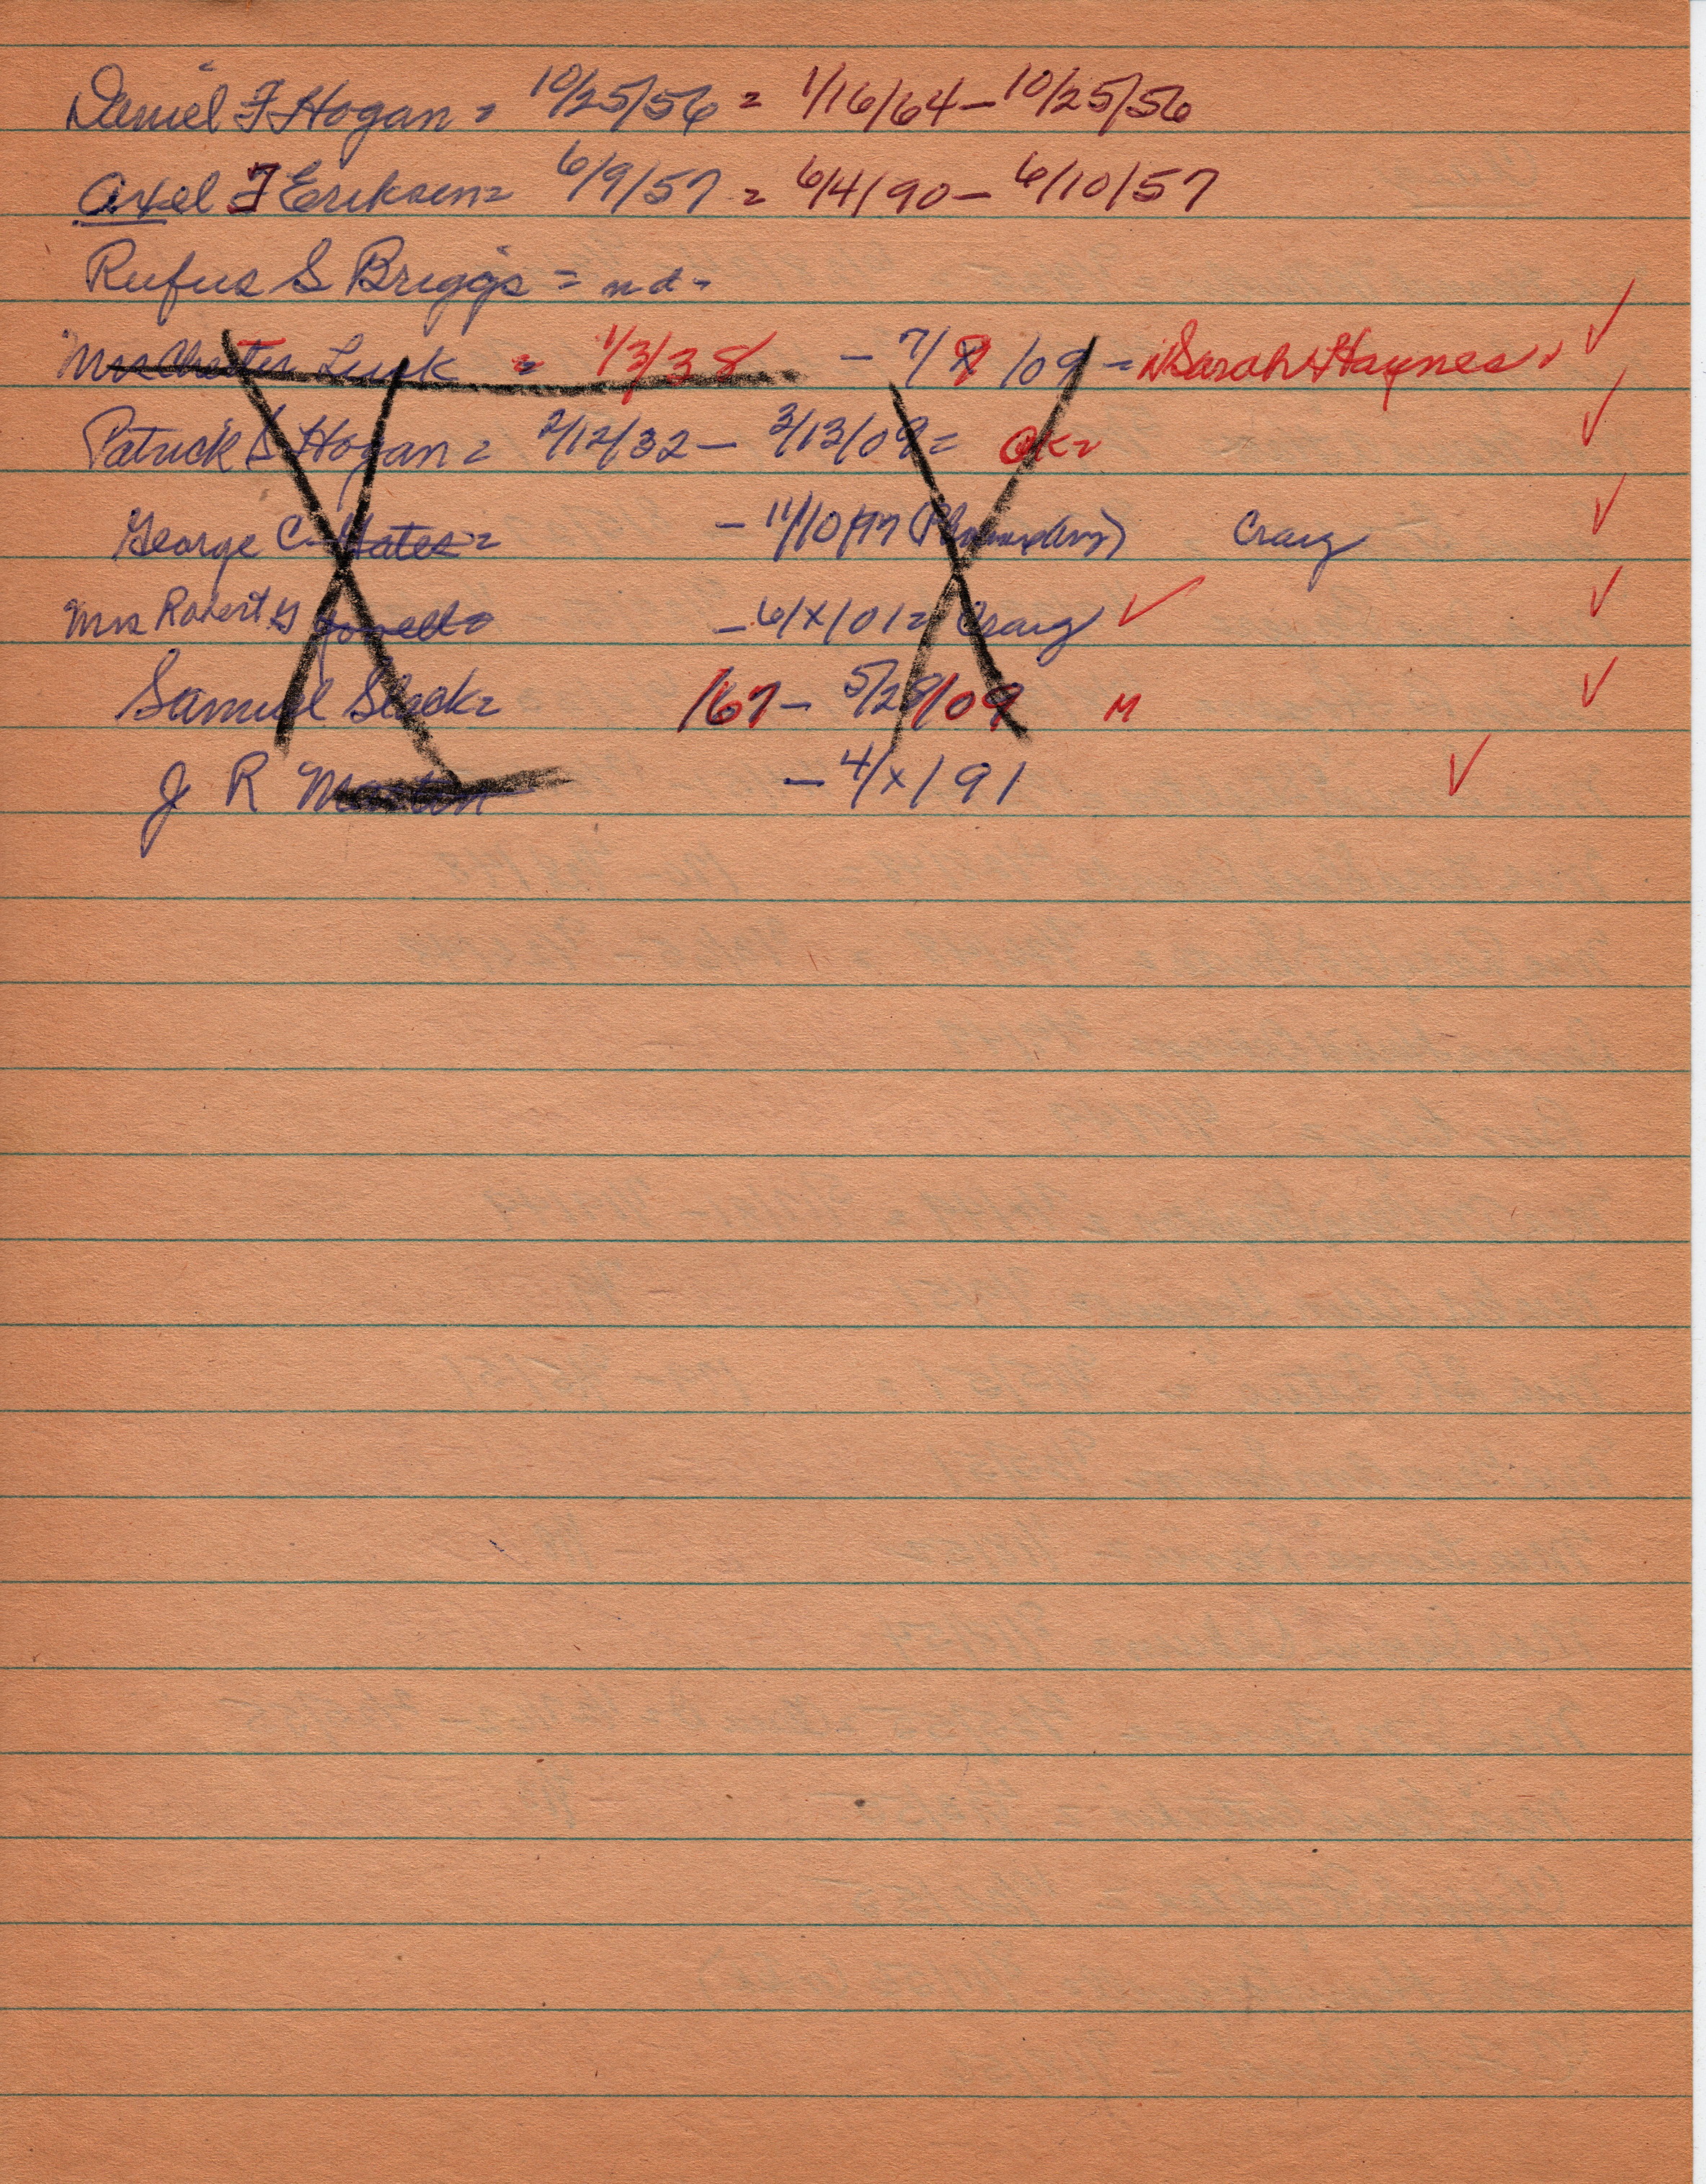 Daniel F Hogan = 10/25/56 = 1/16/64 - 10/25/56
Axel F Eriksen = 6/9/57 = 6/4/90 - 6/10/57
Rufus S Briggs = nd -
Mrs Chester Luck = 1/3/38 - 7/ /09 = Sarah Haynes
Patrick S Hogan = 2/12/32 - 3/13/09 = OK =
George C. Yates = - 11/10/97 Craig
Mrs Robert - 6/x/01 = Craig ✓
Samuel Slack = /67 - 5/28/09 M
J R Martin - 4/x/91